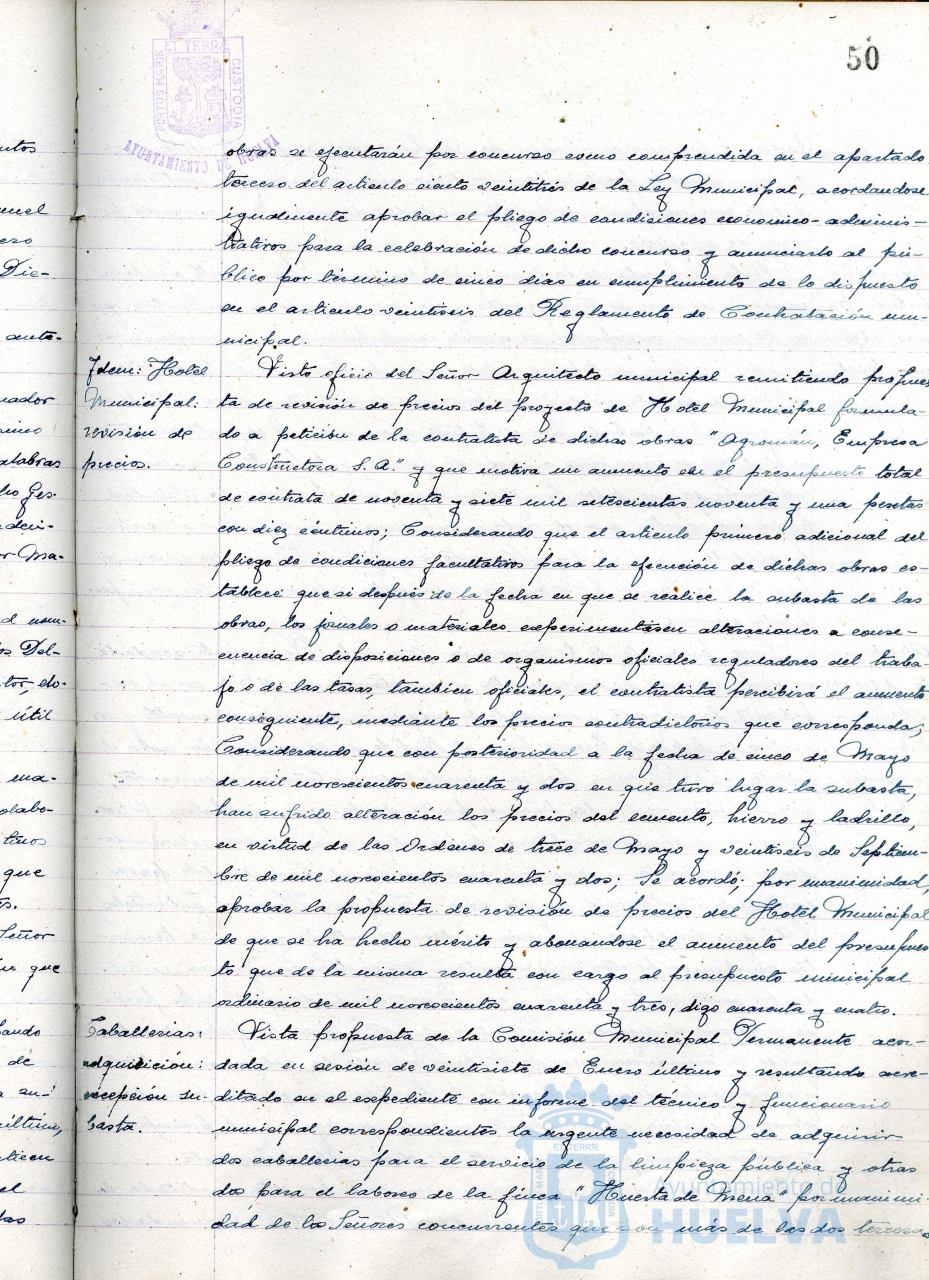 50
PORTUS MARIS
ET TERRÆ
CUSTODIA
AYUNTAMIENTO DE HUELVA
obras se ejecutarán por concurso como comprendida en el apartado
tercero del articulo ciento veintitrés de la Ley Municipal, acordandose
igualmente aprobar el pliego de condiciones economico-adminis-
trativos para la celebración de dicho concurso y anunciarlo al pú-
blico por término de cinco dias en cumplimiento de lo dispuesto
en el articulo veintiseis del Reglamento de Contratación mu-
nicipal.
Idem: Hotel
Municipal:
revisión de
precios.
Visto oficio del Señor Arquitecto municipal remitiendo propues
ta de revisión de precios del proyecto de Hotel Municipal formula-
do a petición de la contratista de dichas obras "Agromán, Empresa
Constructora S.A." y que motiva un aumento en el presupuesto total
de contrata de noventa y siete mil setescientas noventa y una pesetas
con diez céntimos; Considerando que el articulo primero adicional del
pliego de condiciones facultativos para la ejecución de dichas obras es-
tablece que si después de la fecha en que se realice la subasta de las
obras, los jornales o materiales experimentasen alteraciones a conse-
cuencia de disposiciones o de organismos oficiales reguladores del traba-
jo o de las tasas, tambien oficiales, el contratista percibirá el aumento
consiguiente, mediante los precios contradictorios que corresponda;
Considerando que con posterioridad a la fecha de cinco de Mayo
de mil novescientos cuarenta y dos en que tuvo lugar la subasta,
han sufrido alteración los precios del cemento, hierro y ladrillo,
en virtud de las Ordenes de trece de Mayo y veintiseis de Septiem-
bre de mil novocientos cuarenta y dos; Se acordó, por unanimidad,
aprobar la propuesta de revisión de precios del Hotel Municipal
de que se ha hecho mérito y abonandose el aumento del presupues
to que de la misma resulta con cargo al presupuesto municipal
ordinario de mil novocientos cuarenta y tres, digo cuarenta y cuatro.
Caballerias:
adquisición:
excepción su-
basta.
Vista propuesta de la Comisión Municipal Permanente acor-
dada en sesión de veintisiete de Enero último y resultando acre-
ditado en el expediente con informe del técnico y funcionario
municipal correspondientes la urgente necesidad de adquirir
dos caballerias para el servicio de la limpieza pública y otras
dos para el laboreo de la finca "Huerta de Mena" por unanimi-
dad de los Señores concurrentes que son más de las dos terceras
Ayuntamiento de
HUELVA